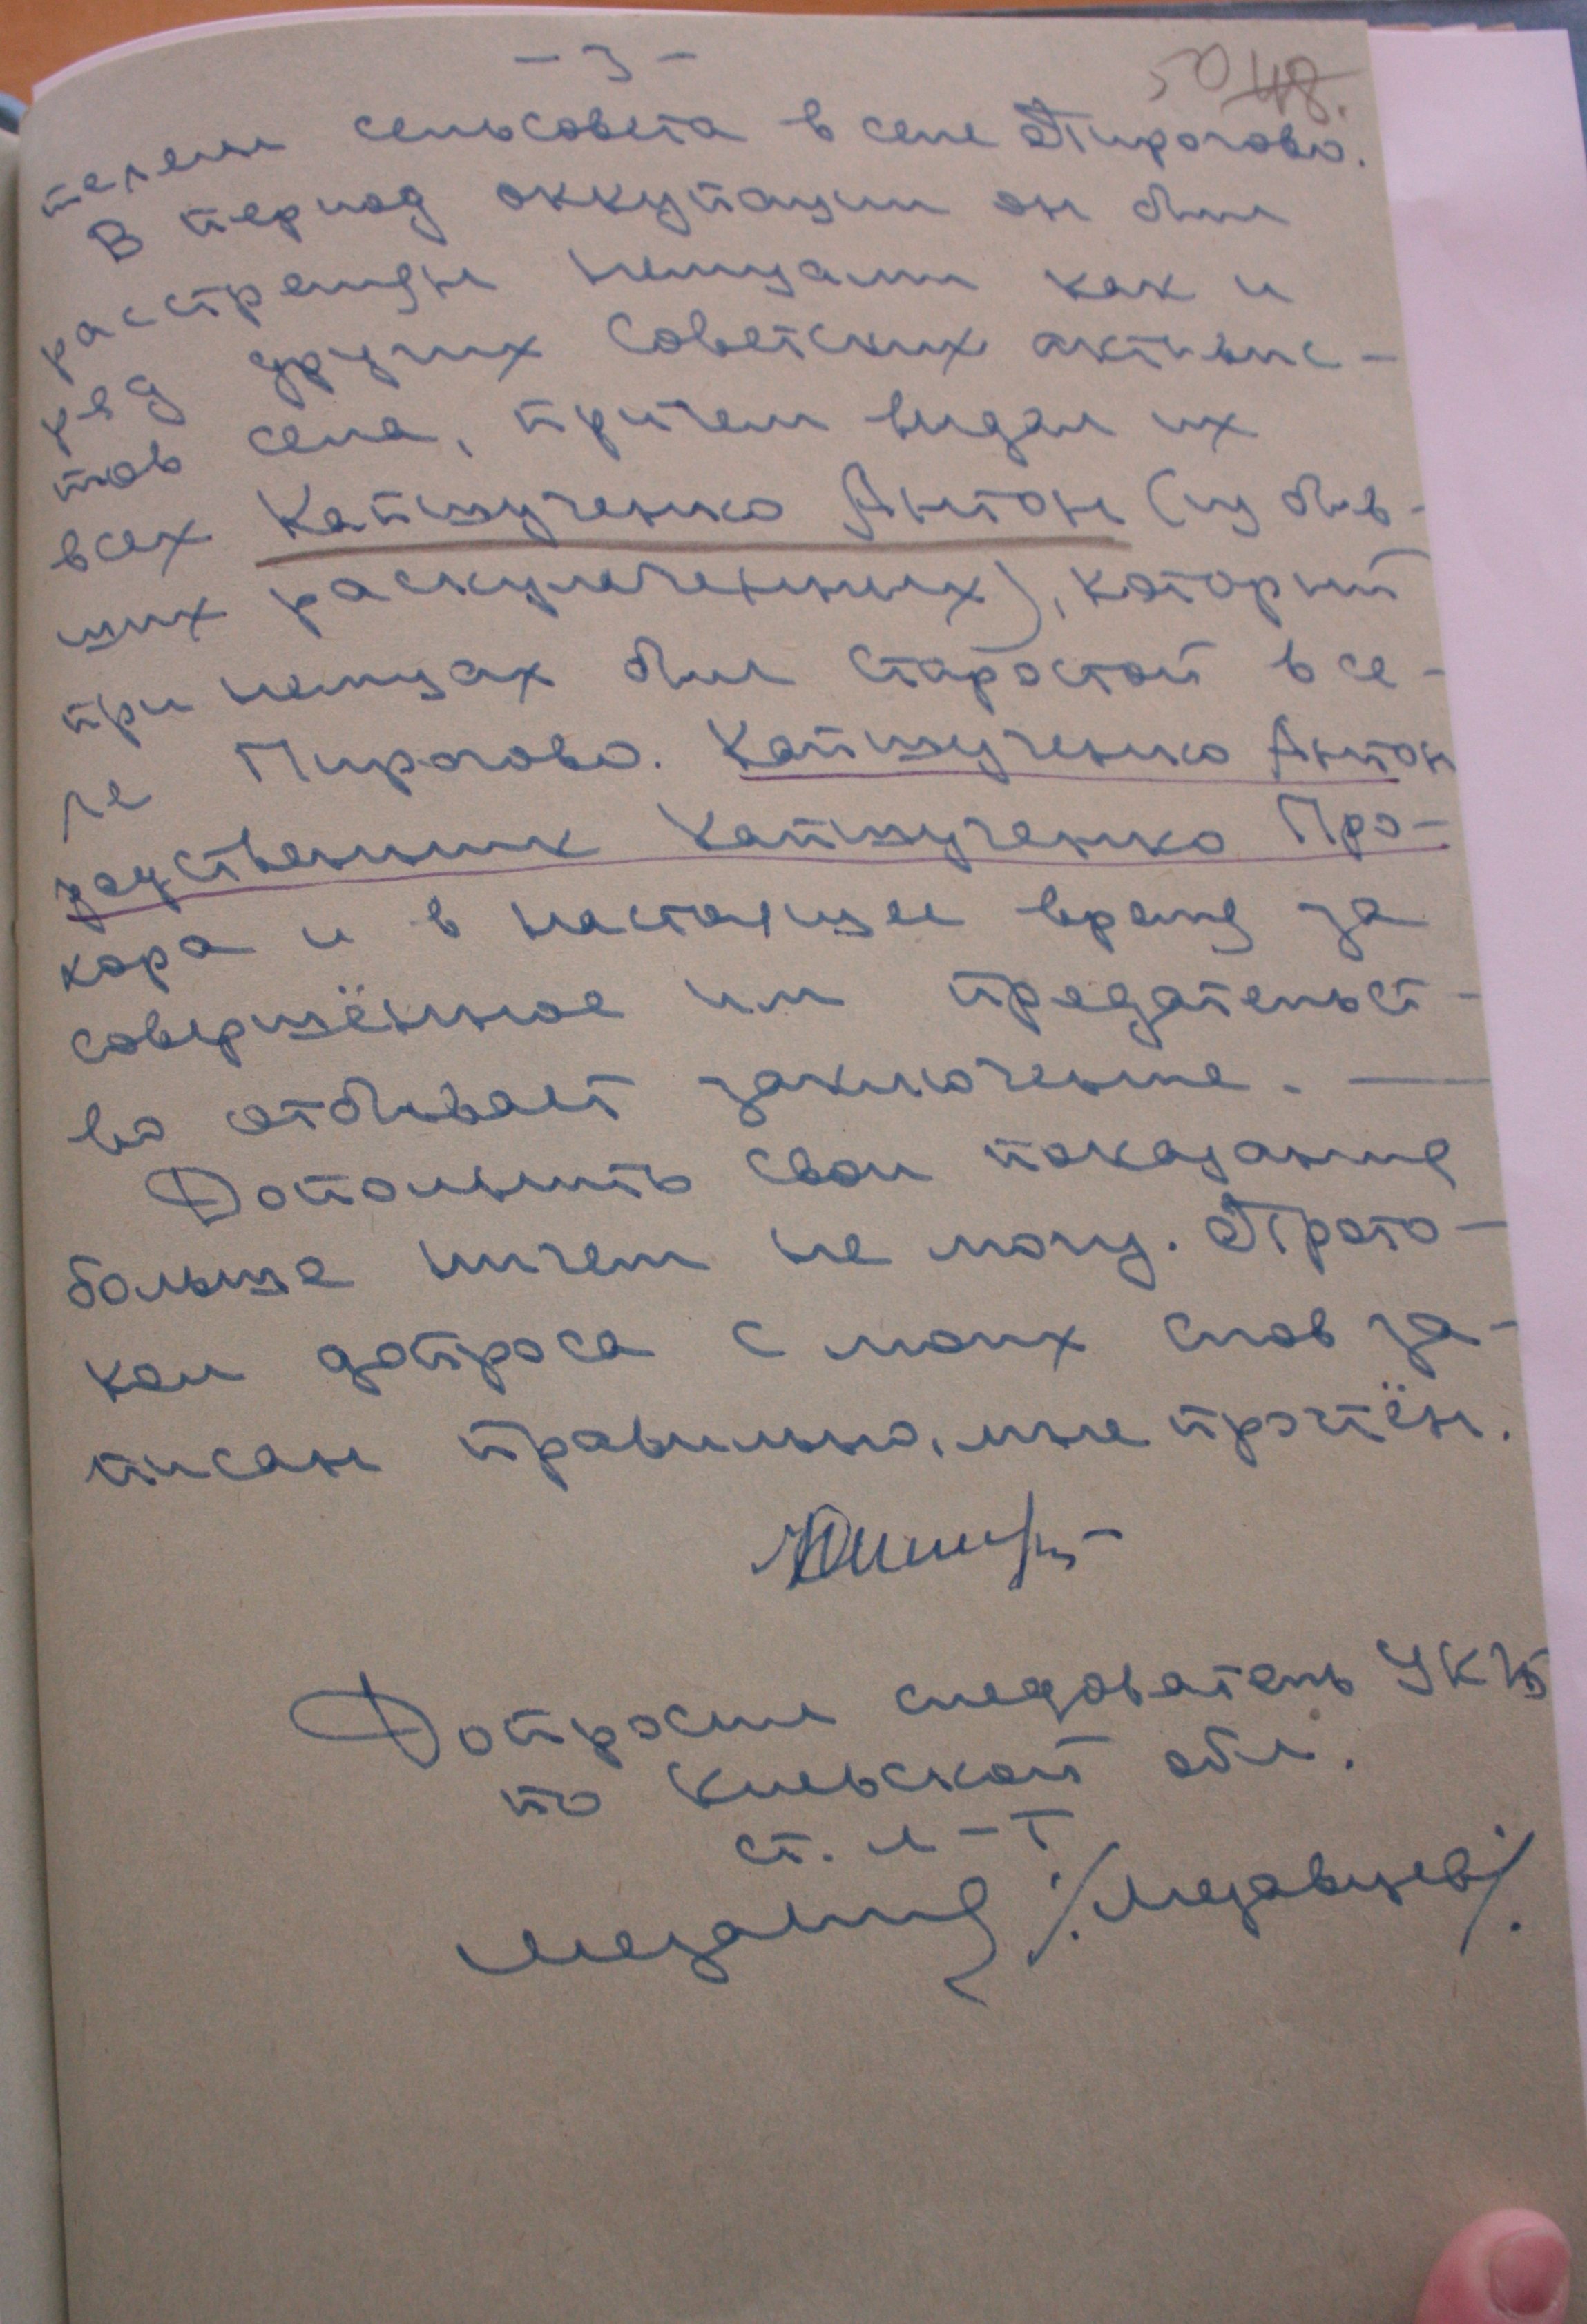 - 3 -
50 48.
телем сельсовета в селе Пирогово.
В период оккупации он был
расстрелян немцами как и
ряд других советских активис-
тов села, причем выдал их
всех Капшученко Антон (из быв-
ших раскулаченных), который
при немцах был старостой в се-
ле Пирогово. Капшученко Антон
родственник Капшученко Про-
кора и в настоящее время за
совершённое им предательст-
во отбывает заключение. —
Дополнить свои показания
больше ничем не могу. Прото-
кол допроса с моих слов за-
писан правильно, мне прочтён.
Допросил следователь УКГБ
по Киевской обл.
ст. л-т